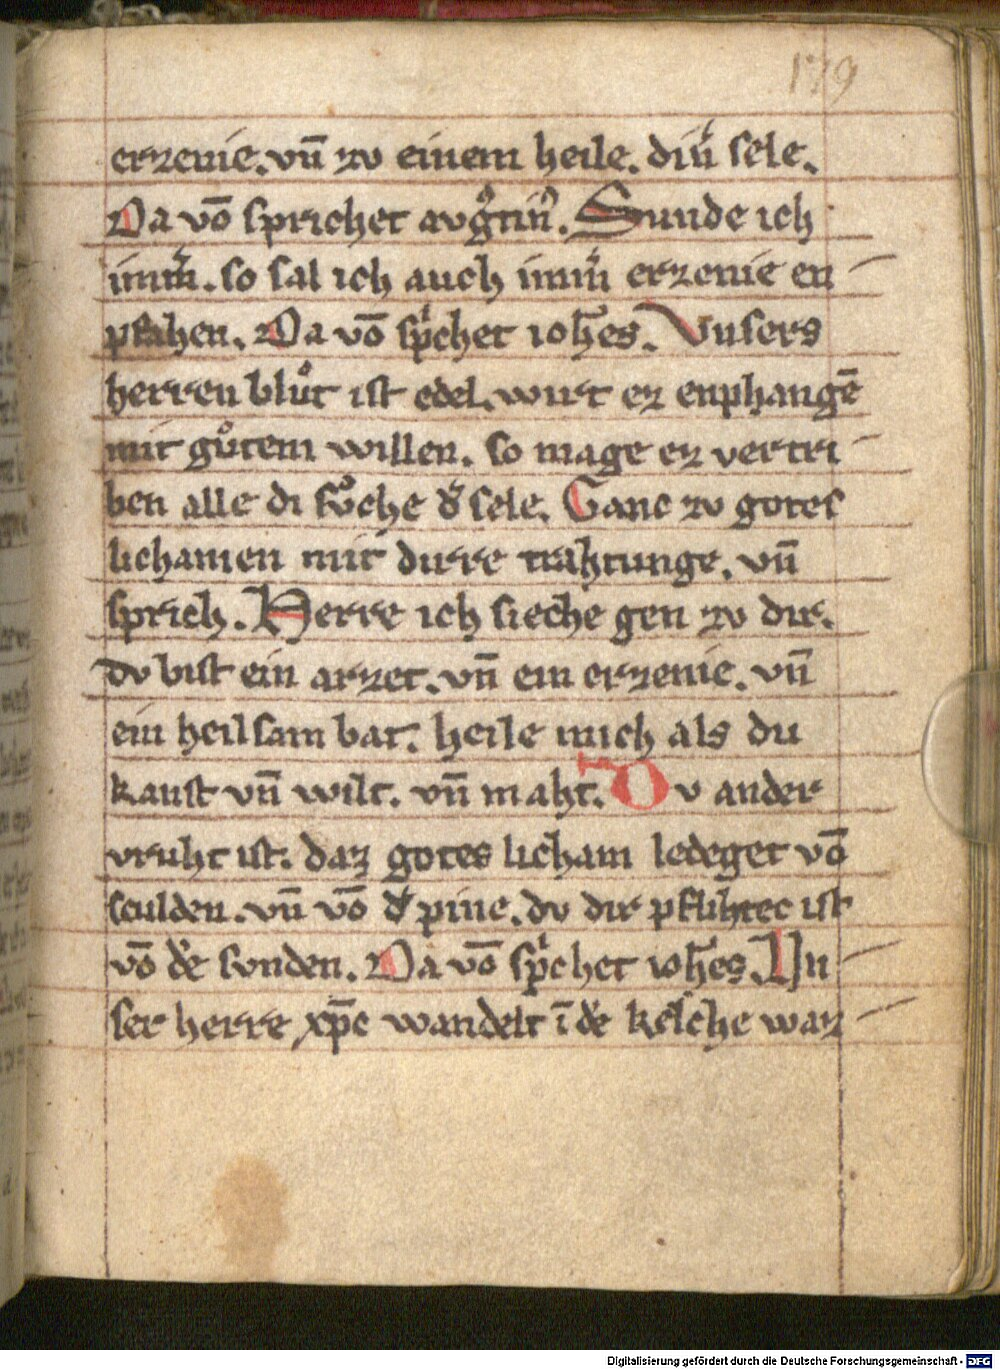 179
erzenie. vn̄ zv einem heile. din͛ sele.
Da vō sprichet avgͦtinꝰ. Sunde ich
imm͛. so sal ich auch imm͛ erzenie en
pfahen. Da vō spͥchet ioh̄es. Vnsers
herren blůt ist edel. wirt er enphangē
mit gůtem willen. so mage er vertri
ben alle di svͦche d͛ sele. Ganc zv gotes
lichamen mit dirre trahtunge. vn̄
sprich. Herre ich sieche gen zv dir.
dv bist ein arzet. vn̄ ein erzenie. vn̄
ein heilsam bat. heile mich als du
kanst vn̄ wilt. vn̄ maht. Dv ander
vruht ist. daz gotes licham ledeget vō
sculden. vn̄ vō d͛ pine. dv dir pflihtec ist
vō d͛e svnden. Da vō spͥchet ioh̄es. Vn
ser herre xp̄c wandelt ī d͛e kelche waz
Digitalisierung gefördert durch die Deutsche Forschungsgemeinschaft - DFG